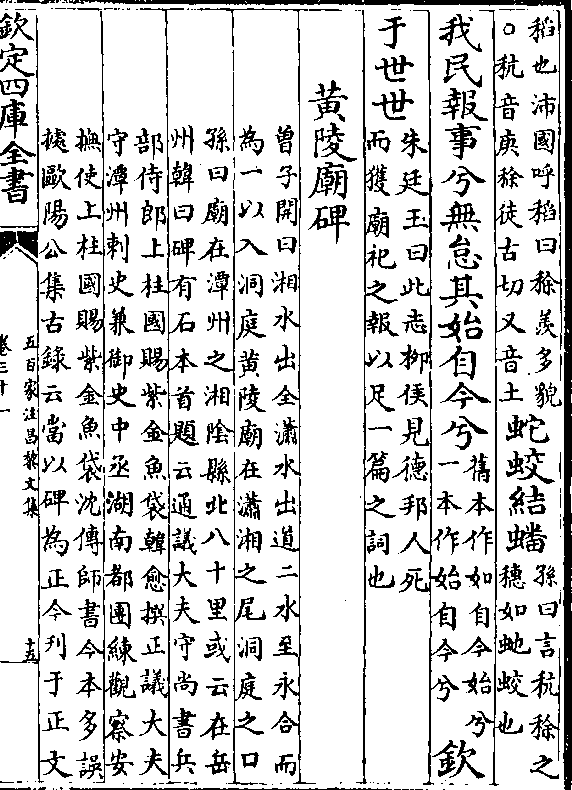 稻也沛國呼稻曰稌羨多貌
○秔音庚稌徒古切又音土
蛇蛟結蟠
孫曰言秔稌之
穗如虵蛟也
我民報事兮無怠其始自今兮
舊本作如自今始兮
一本作始自今兮
欽
于世世
朱廷玉曰此志栁侯見德邦人死
而獲廟祀之報以足一篇之詞也
黃陵廟碑
曾子開曰湘水出全瀟水出道二水至永合而
為一以入洞庭黃陵廟在瀟湘之尾洞庭之口
孫曰廟在潭州之湘隂縣北八十里或云在岳
州韓曰碑有石本首題云通議大夫守尚書兵
部侍郎上柱國賜紫金魚袋韓愈撰正議大夫
守潭州刺史兼御史中丞湖南都團練觀察安
撫使上柱國賜紫金魚袋沈傳師書今本多誤
據歐陽公集古錄云當以碑為正今列于正文
欽定四庫全書
五百家注昌黎文集
卷三十一
十五